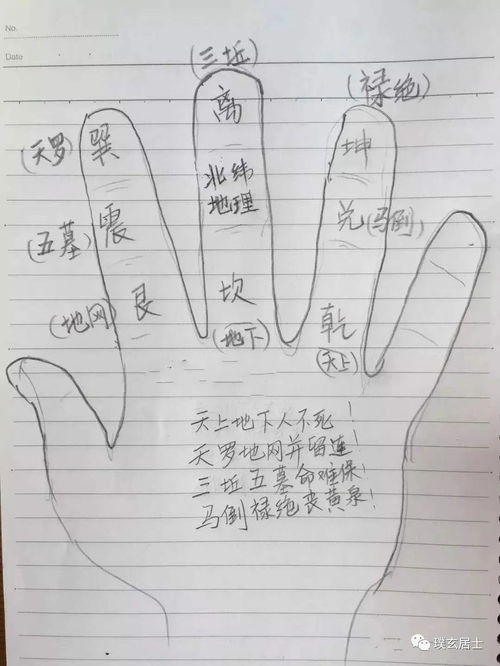 No.
Date
(三坵)
(禄绝)
(天罗) 巽 离 坤
北纬
地理
(五墓) 震 兑 (马倒)
(地网) 艮 坎 乾
(地下) (天上)
天上地下人不死!
天罗地网并留连!
三坵五墓命难保!
马倒禄绝丧黄泉!
璞玄居士